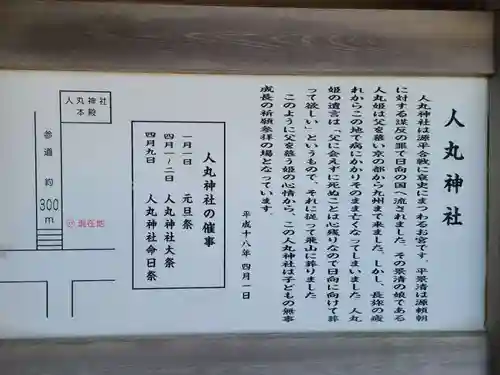 人丸神社
人丸神社は源平合戦に哀史にまつわるお宮です。平景清は源頼朝
に対する謀反の罪で日向の国へ流されました。その景清の娘である
人丸姫は父を慕い京の都から九州まで来ました。しかし、長旅の疲
れからこの地で病にかかりそのまま亡くなってしまいました。人丸
姫の遺言は、「父に会えずに死ぬことは心残りなので日向に向けて葬
って欲しい」というもので、それに従って飛山に葬りました
このように父を慕う姫の心情から、この人丸神社は子どもの無事
成長の祈願参拝の場となっています。
平成十八年四月一日
人丸神社の催事
一月一日 元旦祭
四月一・二日 人丸神社大祭
四月九日 人丸神社命日祭
人丸神社
本殿
参道 約300m
現在地